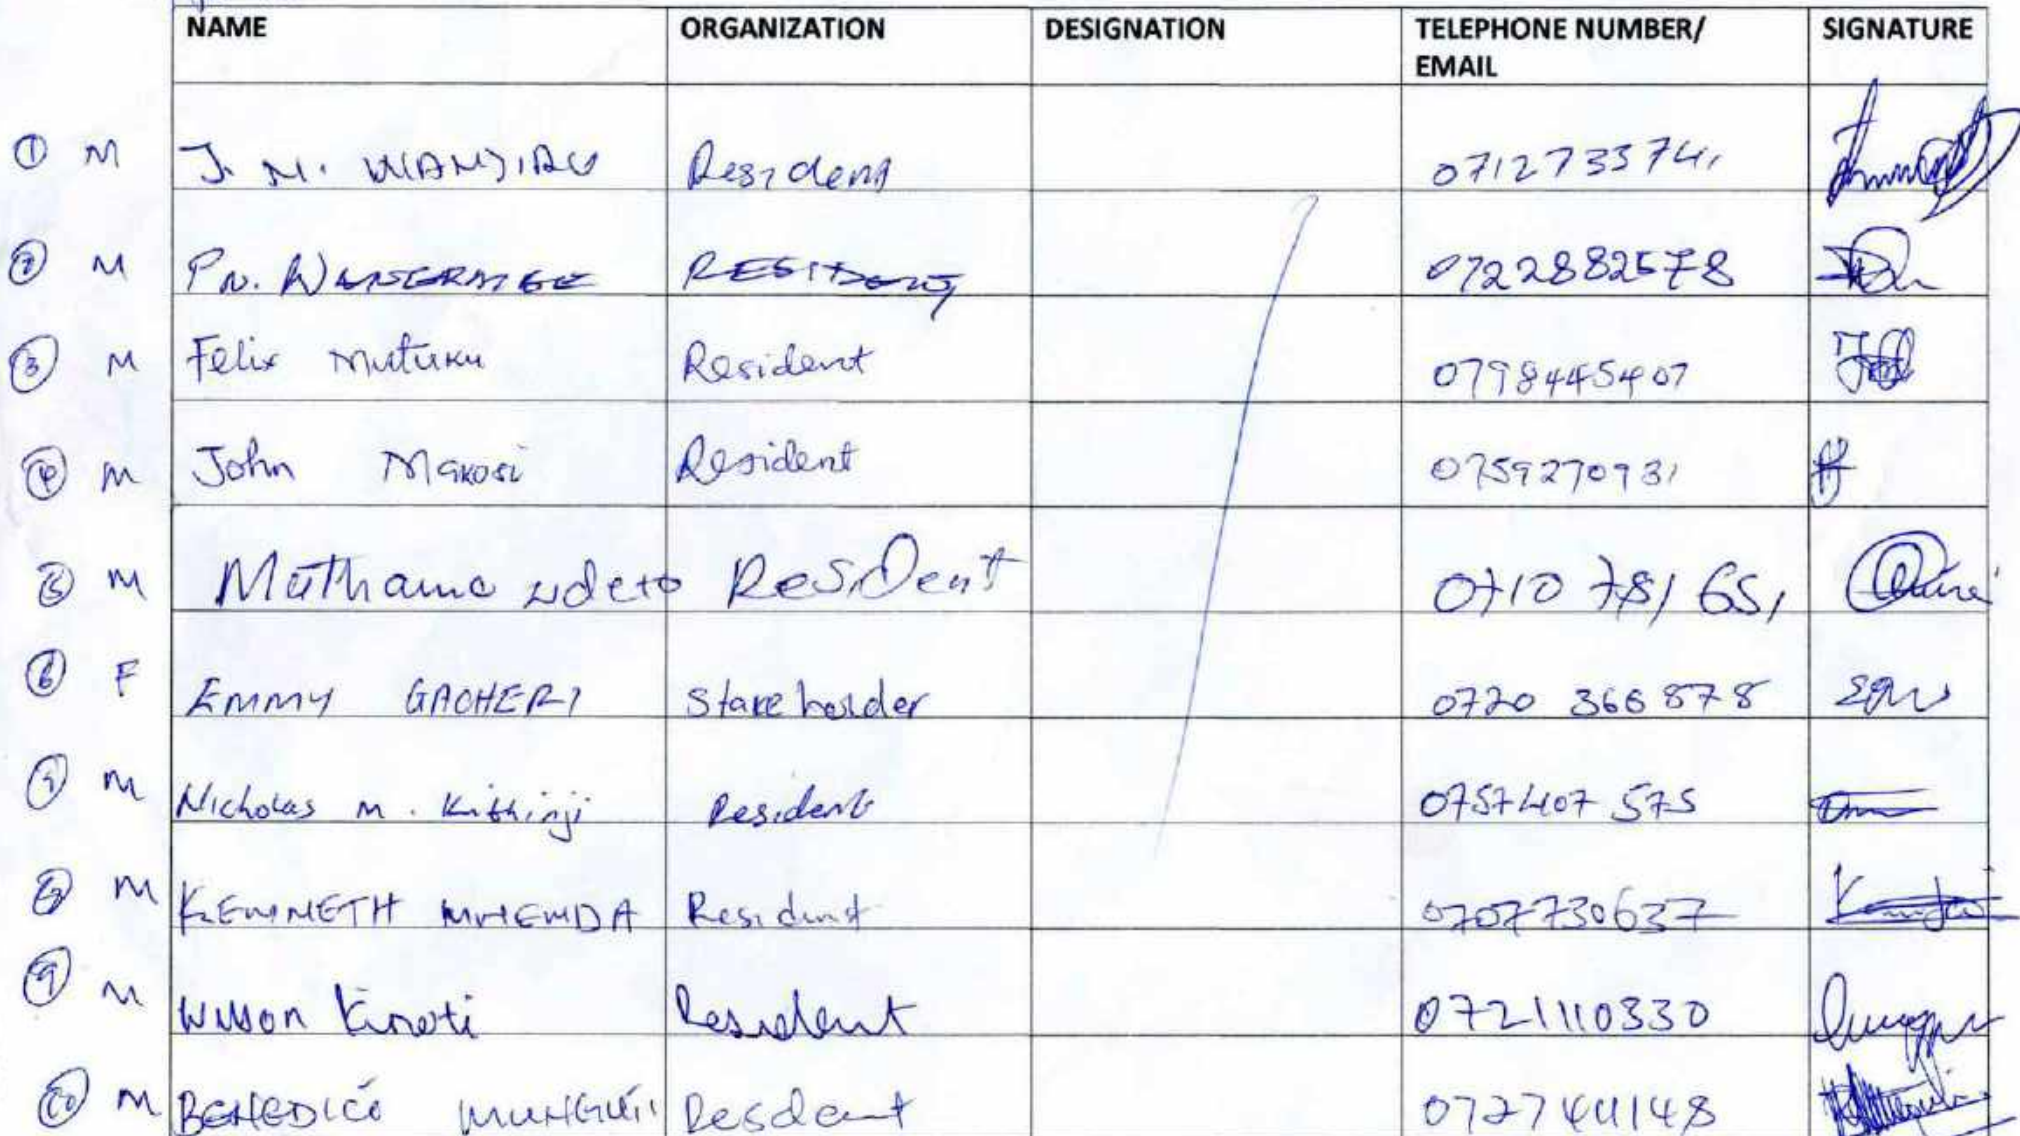 NAME ORGANIZATION DESIGNATION TELEPHONE NUMBER/ EMAIL SIGNATURE
① M J. M. WANJIRU Resident 0712733741
② M P.N. Resident 0722882578
③ M Felix Mutuku Resident 0798445407
④ M John Makosi Resident 0759270931
⑤ M Muthama Ndeto Resident 0710 781 651
⑥ F EMMY GACHERI Stakeholder 0720 366 878
⑦ M Nicholas M. Kithinji Resident 0757407 575
⑧ M KENNETH Resident 0707730637
⑨ M Wilson Kireti Resident 0721110330
⑩ M Resdent